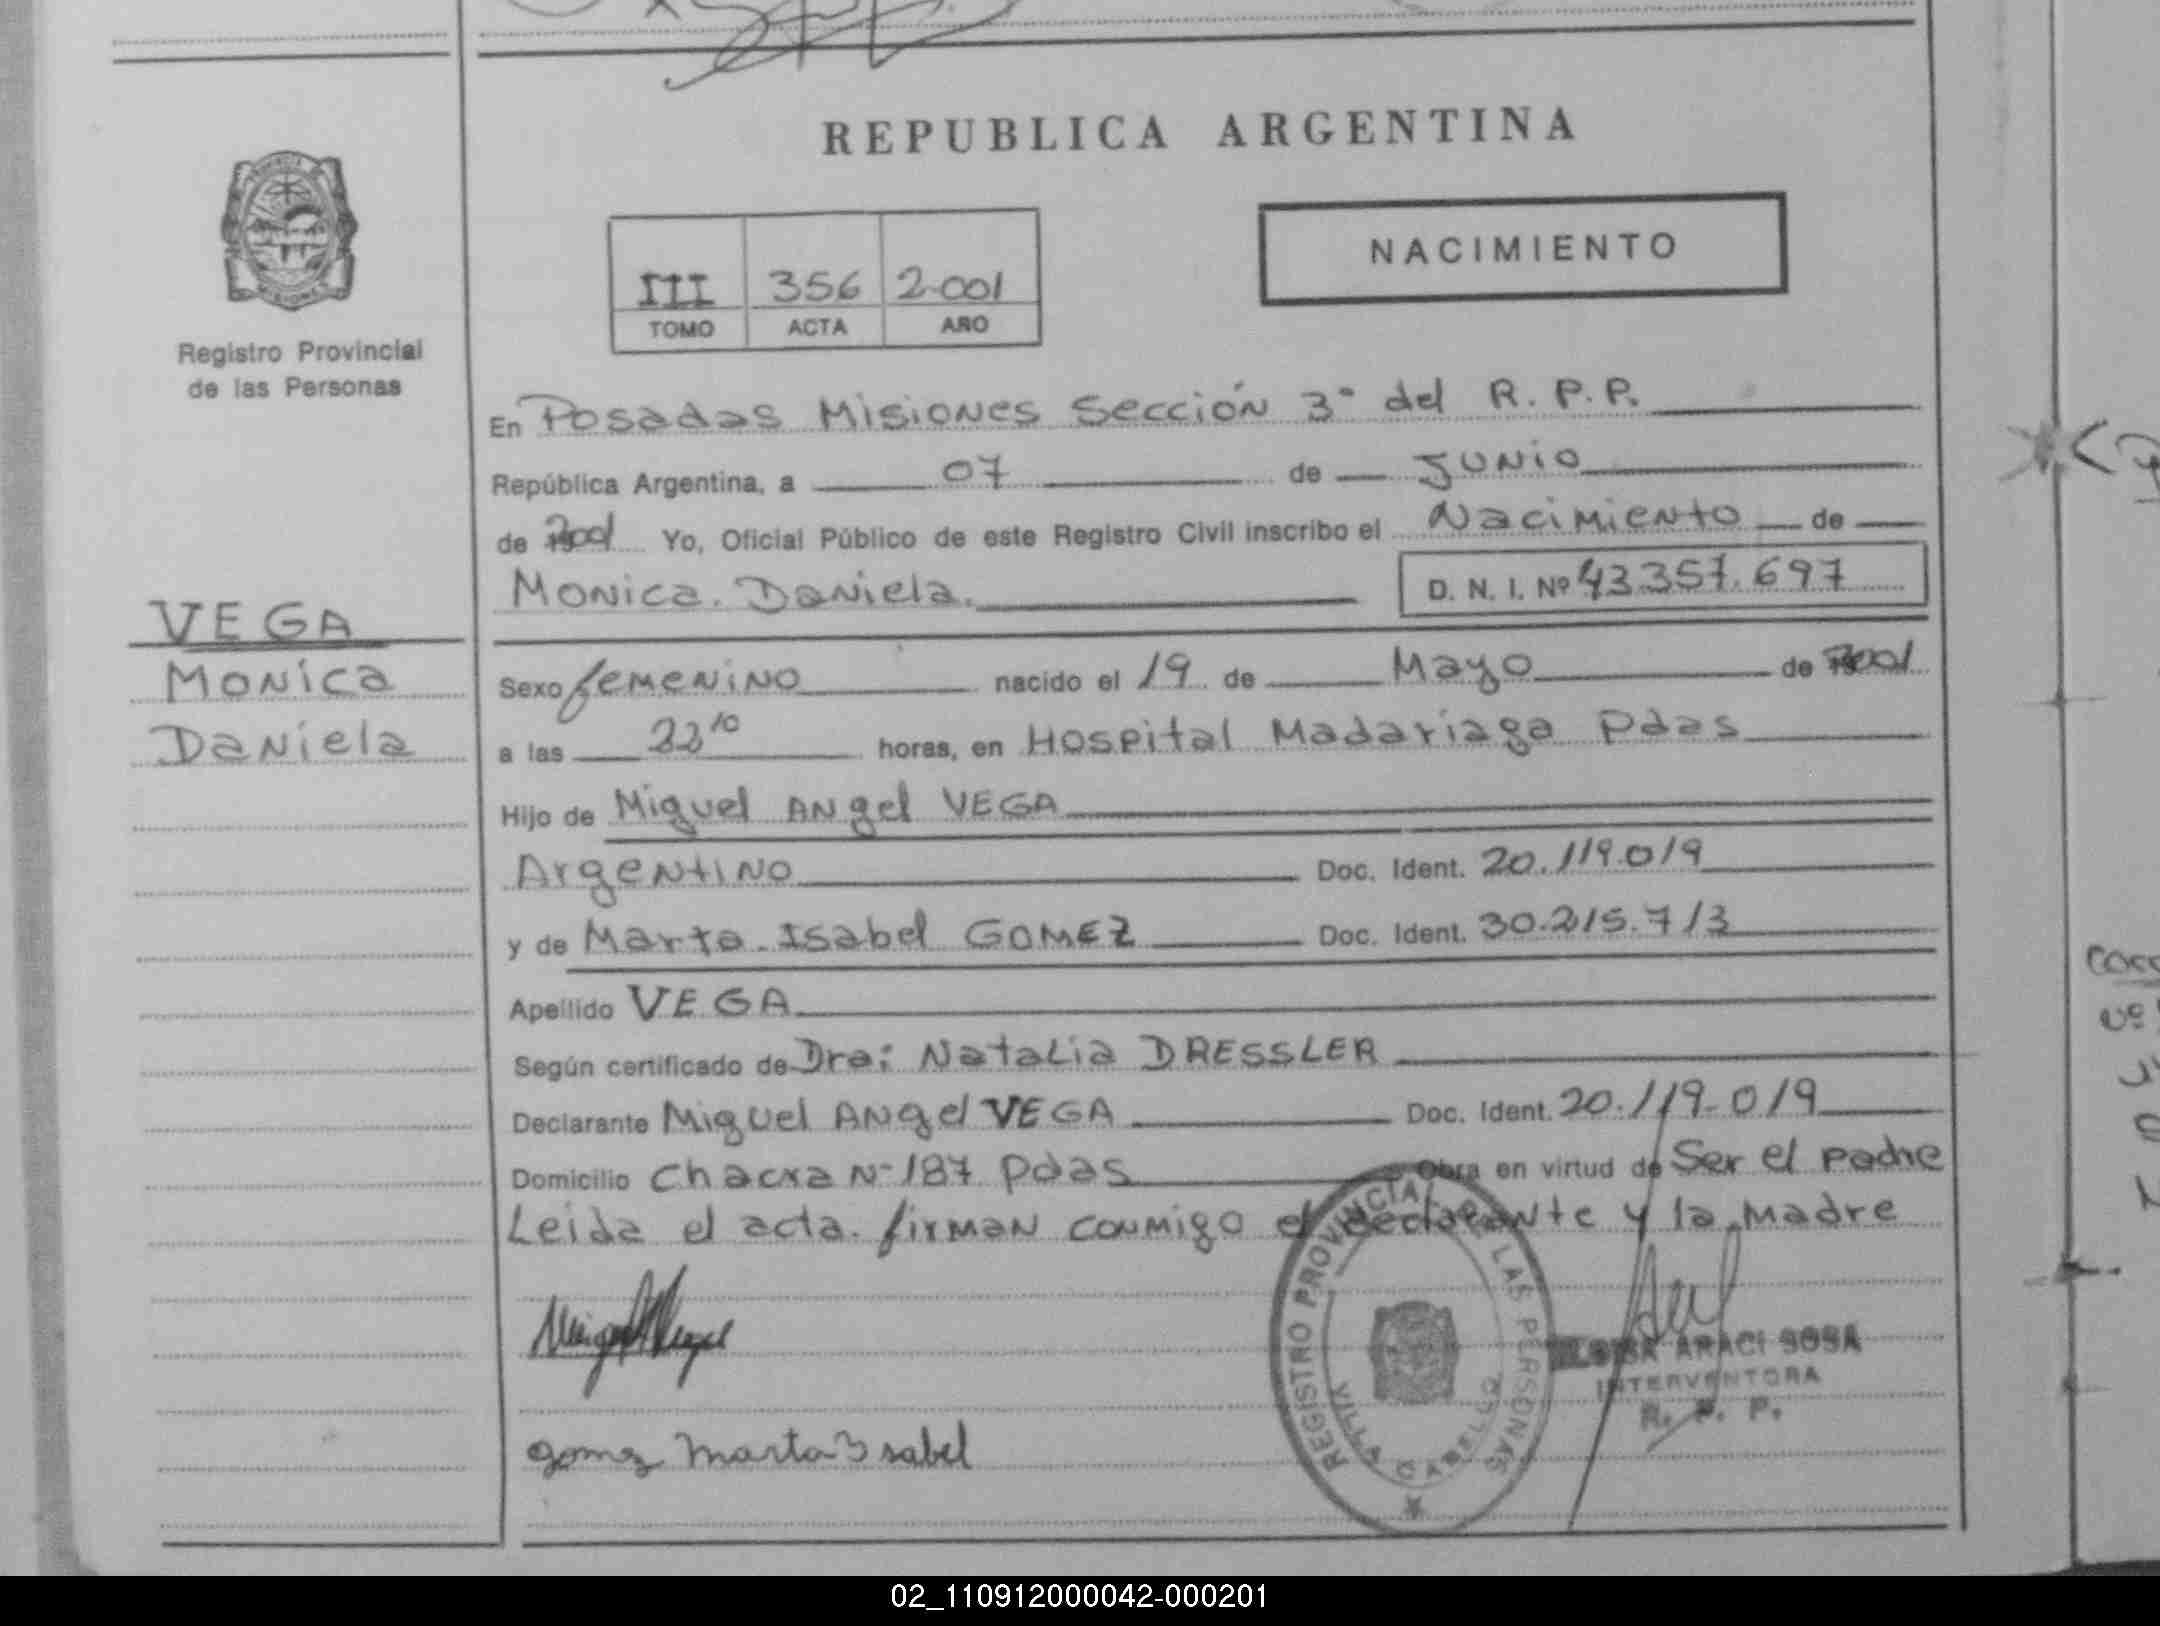 REPUBLICA ARGENTINA
NACIMIENTO
III 356 2.001
TOMO ACTA AÑO
Registro Provincial
de las Personas
En Posadas Misiones Sección 3° del R.P.P.
República Argentina, a 07 de Junio
de 2001 Yo, Oficial Público de este Registro Civil inscribo el Nacimiento de
Monica Daniela. D. N. I. Nº 43.357.697
VEGA
Monica
Daniela
Sexo femenino nacido el 19 de Mayo de 2001
a las horas, en Hospital Madariaga Pdas
Hijo de Miguel Angel VEGA
Argentino Doc. Ident. 20.119.019
y de Marta Isabel GOMEZ Doc. Ident. 30.215.713
Apellido VEGA
Según certificado de Dra: Natalia DRESSLER
Declarante Miguel Angel VEGA Doc. Ident. 20.119.019
Domicilio Chacra N° 187 Pdas Obra en virtud de Ser el padre
Leida el acta. firman conmigo el declarante y la madre
REGISTRO PROVINCIAL DE LAS PERSONAS
VILLA CABELLO
ARACI SOSA
INTERVENTORA
R. P. P.
gomez Marta Isabel
02_110912000042-000201